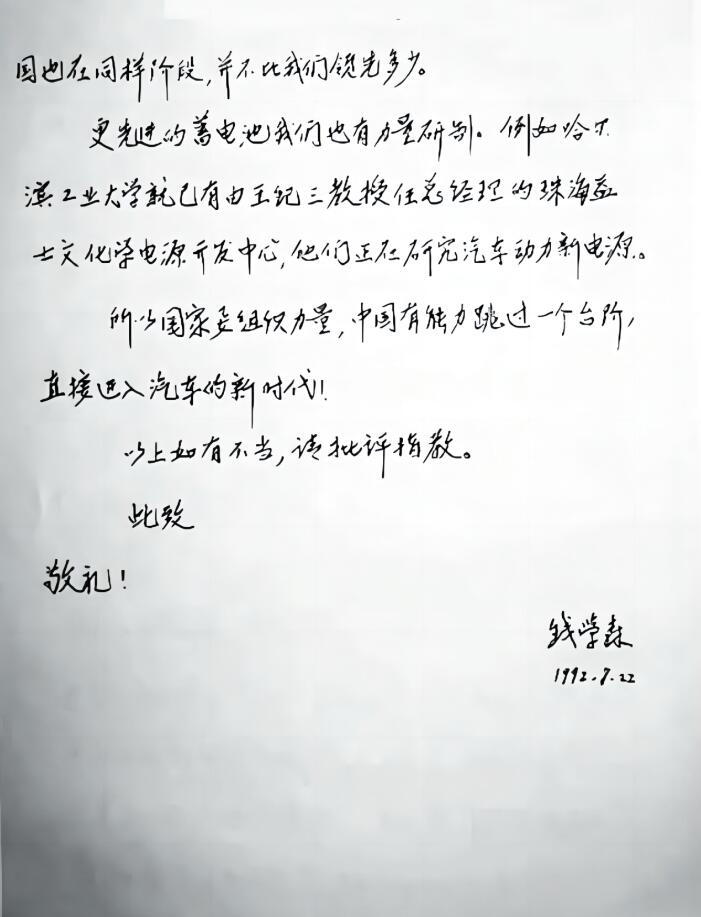 国也在同样阶段,并不比我们领先多少。
更先进的蓄电池我们也有力量研制。例如哈尔
滨工业大学就已有由王纪三教授任总经理的珠海益
士文化学电源开发中心,他们正在研究汽车动力新电源。
所以国家要组织力量,中国有能力跳过一个台阶,
直接进入汽车的新时代!
以上如有不当,请批评指教。
此致
敬礼!
钱学森
1992.7.22